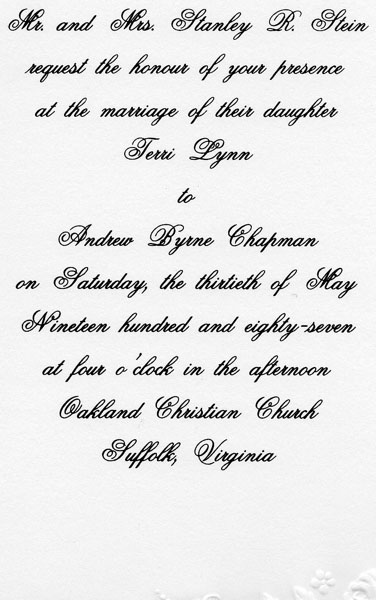 Mr. and Mrs. Stanley R. Stein
request the honour of your presence
at the marriage of their daughter
Terri Lynn
to
Andrew Byrne Chapman
on Saturday, the thirtieth of May
Nineteen hundred and eighty-seven
at four o'clock in the afternoon
Oakland Christian Church
Suffolk, Virginia